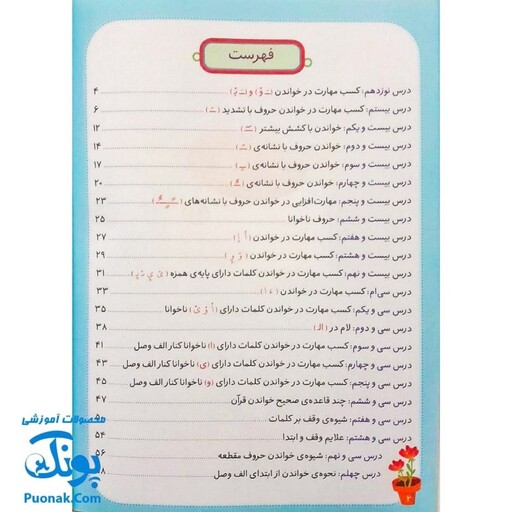 فهرست
درس نوزدهم: کسب مهارت در خواندن ۴
درس بیستم: کسب مهارت در خواندن حروف با تشدید ( ـّ ) ۶
درس بیست و یکم: خواندن با کشش بیشتر ( ـٓ ) ۱۲
درس بیست و دوم: خواندن حروف با نشانه‌ی ۱۴
درس بیست و سوم: خواندن حروف با نشانه‌ی ۱۷
درس بیست و چهارم: خواندن حروف با نشانه‌ی ۲۰
درس بیست و پنجم: مهارت‌افزایی در خواندن حروف با نشانه‌های ۲۳
درس بیست و ششم: حروف ناخوانا ۲۵
درس بیست و هفتم: کسب مهارت در خواندن ۲۷
درس بیست و هشتم: کسب مهارت در خواندن ۲۹
درس بیست و نهم: کسب مهارت در خواندن کلمات دارای پایه‌ی همزه ۳۱
درس سی‌اُم: کسب مهارت در خواندن ۳۳
درس سی و یکم: کسب مهارت در خواندن کلمات دارای ناخوانا ۳۵
درس سی و دوم: لام در (الـ) ۳۸
درس سی و سوم: کسب مهارت در خواندن کلمات دارای (ا) ناخوانا کنار الف وصل ۴۱
درس سی و چهارم: کسب مهارت در خواندن کلمات دارای (ی) ناخوانا کنار الف وصل ۴۳
درس سی و پنجم: کسب مهارت در خواندن کلمات دارای (و) ناخوانا کنار الف وصل ۴۵
درس سی و ششم: چند قاعده‌ی صحیح خواندن قرآن
درس سی و هفتم: شیوه‌ی وقف بر کلمات
درس سی و هشتم: علایم وقف و ابتدا ۵۴
درس سی و نهم: شیوه‌ی خواندن حروف مقطعه ۵۶
درس چهلم: نحوه‌ی خواندن از ابتدای الف وصل
۳
محصولات آموزشی
پونک
Puonak.Com